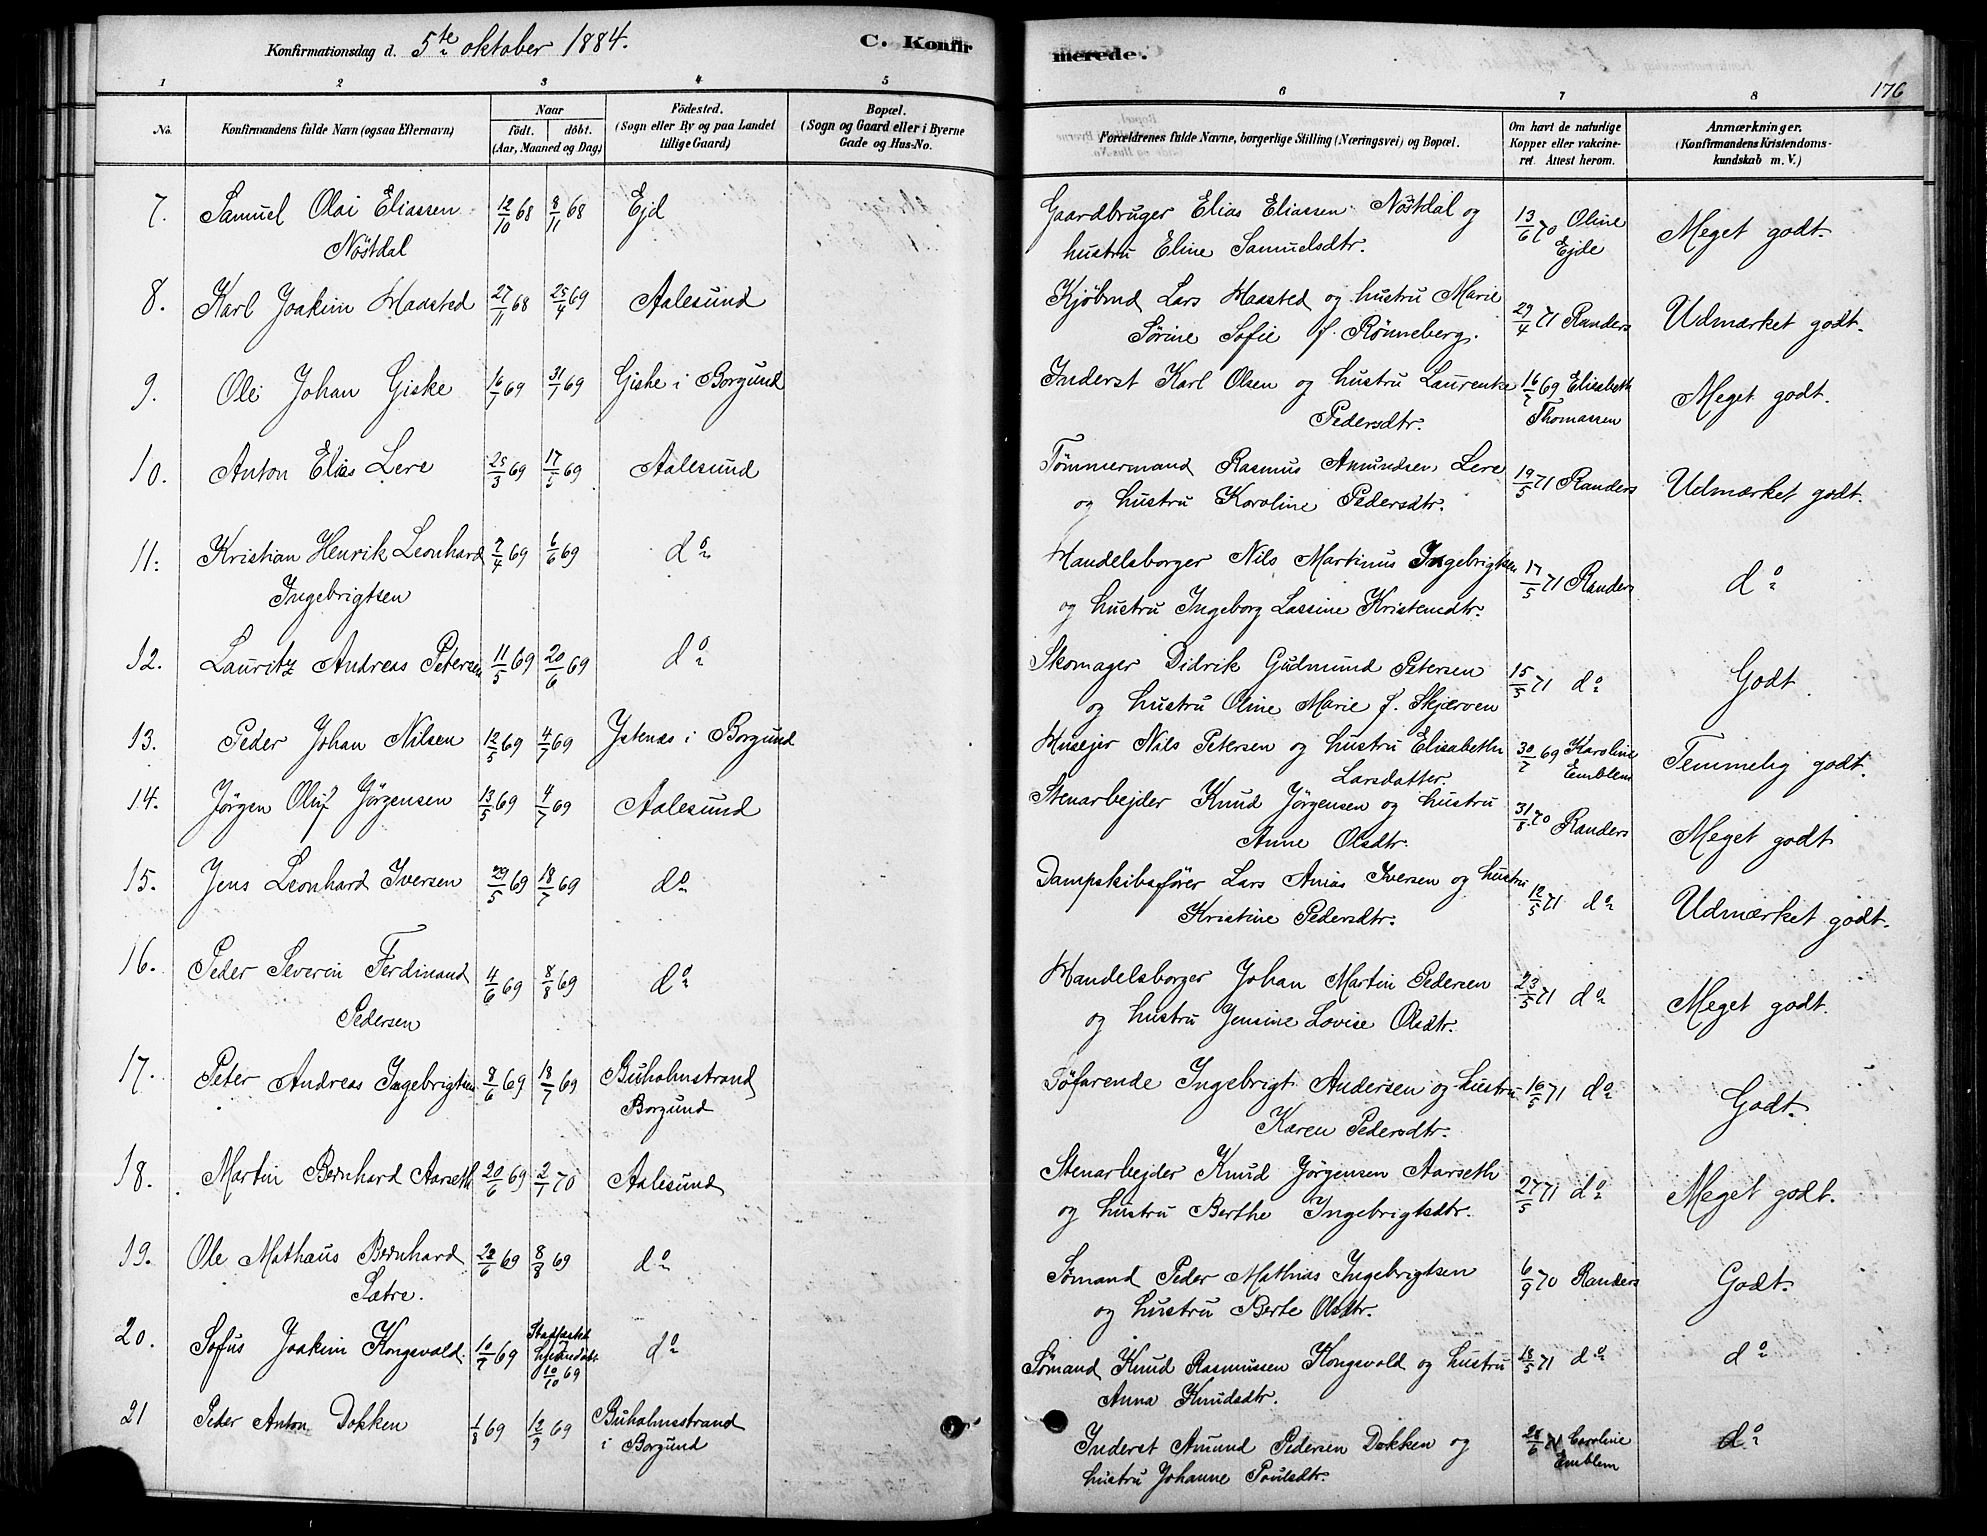 Konfirmationsdag d. 5te oktober 1884.
C. Konfirmerede.
176
1 2 3 4 5 6 7 8
No.
Konfirmandens fulde Navn (ogsaa Efternavn)
Naar
født. døbt.
(Aar, Maaned og Dag)
Fødested.
(Sogn eller By og paa Landet
tillige Gaard)
Bopæl.
(Sogn og Gaard eller i Byerne
Gade og Hus-No.
Forældrenes fulde Navne, borgerlige Stilling (Næringsvei) og Bopæl.
Om havt de naturlige
Kopper eller vakcine-
ret. Attest herom.
Anmærkninger.
(Konfirmandens Kristendoms-
kundskab m. V.)
7. Samuel Olai Eliassen 12/10 68 8/11 68 Ejd Gaardbruger Elias Eliassen Nöstdal og 13/6 70 Oline Meget godt.
Nöstdal hustru Eline Samuelsdtr. Ejde
8. Karl Joakim Haasted 27/11 68 25/4 69 Aalesund Kjöbmd Lars Haasted og hustru Marie 29/4 71 Randers Udmærket godt.
Sørine Sofie f. Rønneberg.
9. Ole Johan Giske 16/7 69 31/7 69 Giske i Borgund Inderst Karl Olsen og hustru Laurentse 16/7 69 Elisabeth Meget godt.
Pedersdtr. Thomassen
10. Anton Elias Lere 25/3 69 17/5 69 Aalesund Tømmermand Rasmus Amundsen Lere 19/5 71 Randers Udmærket godt.
og hustru Karoline Pedersdtr.
11. Kristian Henrik Leonhard 2/4 69 6/6 69 do Handelsborger Nils Martinus Ingebrigtsen 17/5 71 Randers do
Ingebrigtsen og hustru Ingeborg Lassine Kristensdtr.
12. Lauritz Andreas Petersen 11/5 69 20/6 69 do Skomager Didrik Gudmund Petersen 15/5 71 do Godt
og hustru Oline Marie f. Skjærven
13. Peder Johan Nilsen 12/5 69 4/7 69 Ystenæs i Borgund Husejer Nils Petersen og hustru Elisabeth 30/7 69 Karoline Temmelig godt.
Larsdatter. Emblem
14. Jørgen Oluf Jørgensen 13/5 69 4/7 69 Aalesund Stenarbejder Knud Jørgensen og hustru 31/8 70 Randers Meget godt
Anne Olsdtr.
15. Jens Leonhard Iversen 29/5 69 18/7 69 do Dampskibsfører Lars Anias Iversen og hustru 12/5 71 do Udmærket godt.
Kristine Pedersdtr.
16. Peder Severin Ferdinand 4/6 69 8/8 69 do Handelsborger Johan Martin Pedersen 23/5 71 do Meget godt.
Pedersen og hustru Jensine Lovise Olsdtr.
17. Peter Andreas Ingebrigtsen 8/6 69 18/7 69 Buholmstrand Söfarende Ingebrigt Andersen og hustru 16/5 71 do Godt.
Borgund Karen Pedersdtr.
18. Martin Bernhard Aarseth 20/6 69 2/1 70 Aalesund Stenarbejder Knud Jørgensen Aarseth 27/5 71 do Meget godt.
og hustru Berthe Ingebrigtsdtr.
19. Ole Mathæus Bernhard 22/6 69 8/8 69 do Sømand Peder Mathias Ingebrigtsen 6/9 70 Randers Godt.
Sætre. og hustru Berte Olsdtr.
20. Sofus Joakim Kongsvold 10/7 69 Stadfæsted hjemdøbt 10/10 69 do Sømand Knud Rasmussen Kongsvold og hustru 18/5 71 do do
Anna Knudsdtr.
21 Peder Anton Dokken 1/8 69 12/9 69 Buholmsstrand Inderst Amund Pedersen Dokken og 28/6 71 Caroline do
i Borgund hustru Johanne Poulsdtr. Emblem